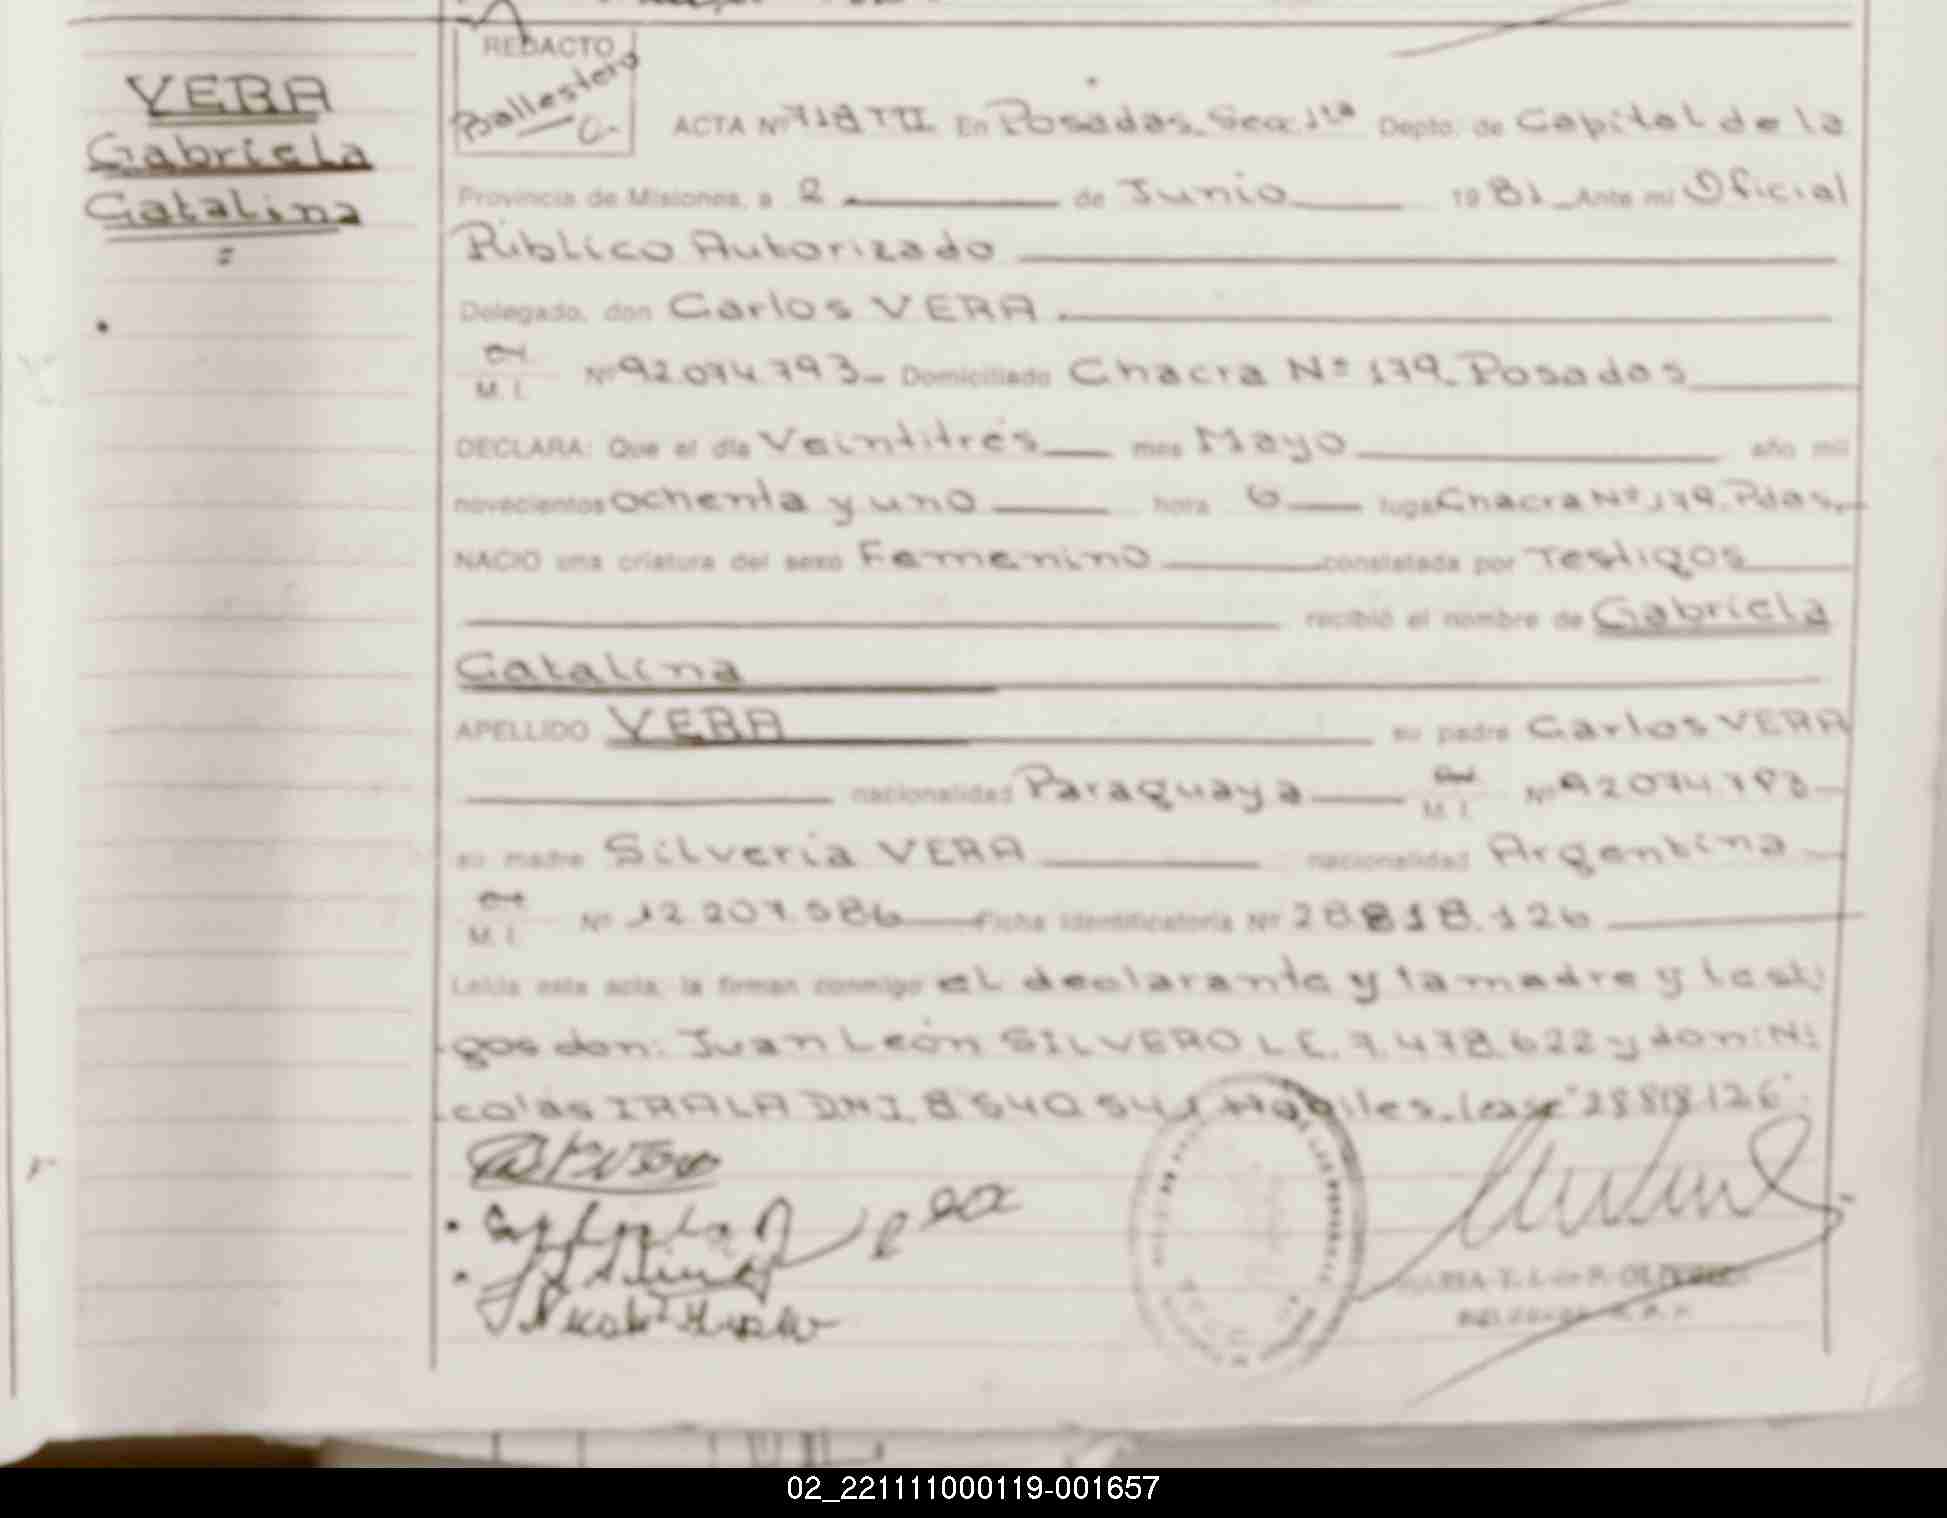 VERA
Gabriela
Catalina
REDACTO
Ballestero
C.
ACTA Nº 718 TIII En Posadas, Sec. 1ra Depto. de Capital de la
Provincia de Misiones, a 2 de Junio 1981 Ante mí Oficial
Público Autorizado
Delegado, don Carlos VERA
M. I. Nº 92.074.793 Domiciliado Chacra Nº 179. Posadas
DECLARA: Que el día Veintitrés mes Mayo año mil
novecientos ochenta y uno hora 6 lugar Chacra Nº 179. Pdas.
NACIO una criatura del sexo Femenino constatada por Testigos
recibió el nombre de Gabriela
Catalina
APELLIDO VERA su padre Carlos VERA
nacionalidad Paraguaya M. I. Nº 92074793
su madre Silveria VERA nacionalidad Argentina
M. I. Nº 12.207.586 Ficha Identificatoria Nº 28.818.126
Leída esta acta, la firman conmigo el declarante y la madre y testi
gos don: Juan León SILVERO L.E. 7.478.622 y don: Ni
colás IRALA DNI. 8 540 541 Hábiles. Léase "28818.126".
02_221111000119-001657